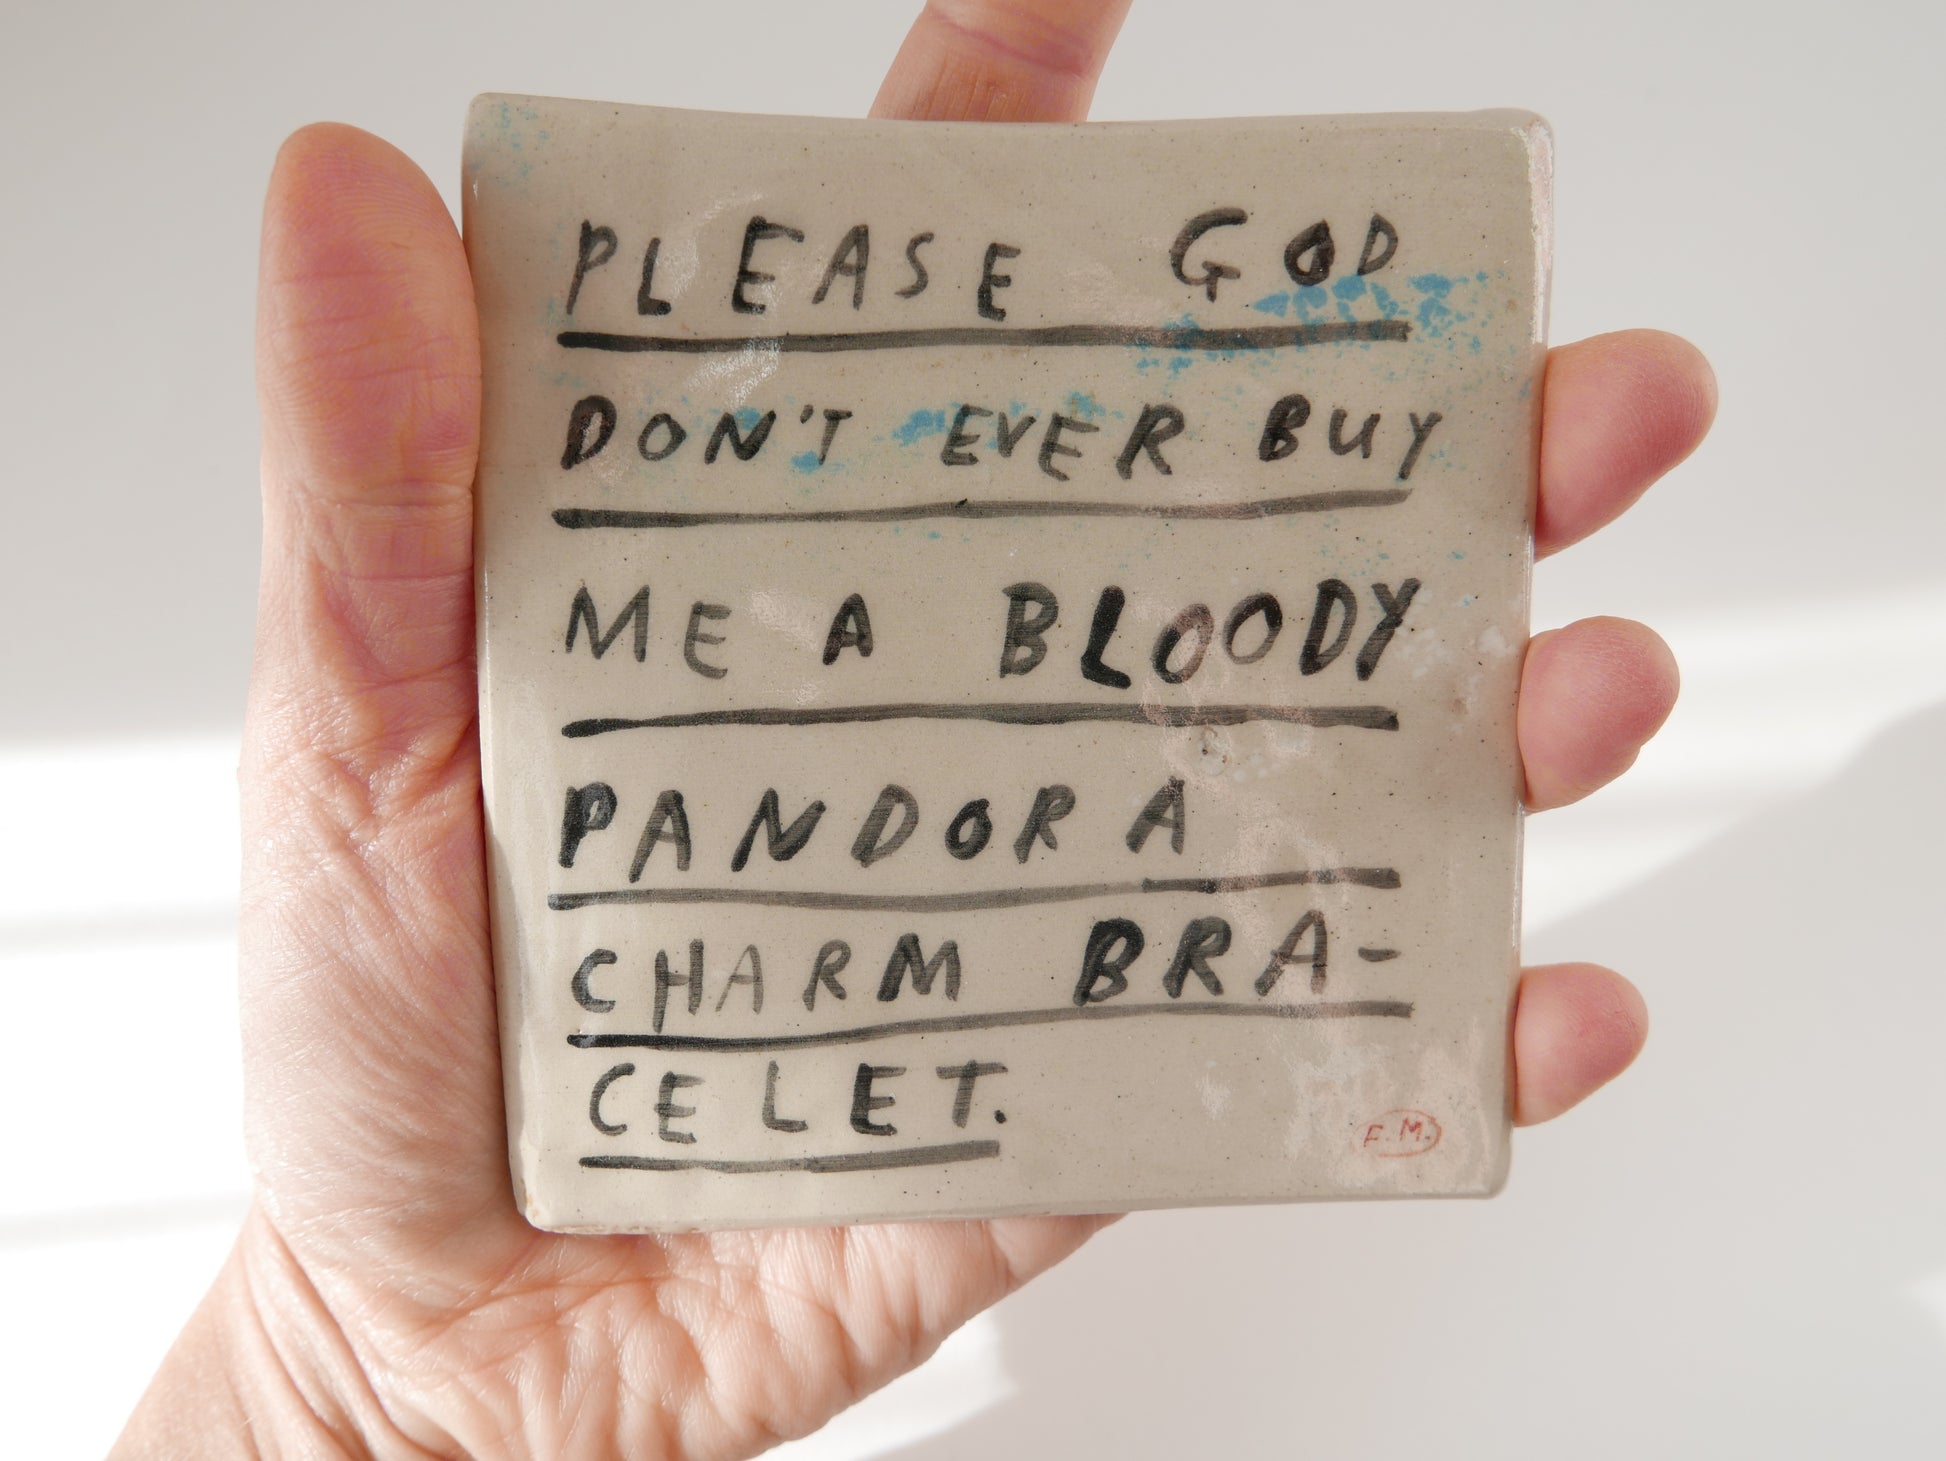 PLEASE GOD
DON'T EVER BUY
ME A BLOODY
PANDORA
CHARM BRA-
CELET.
F.M.